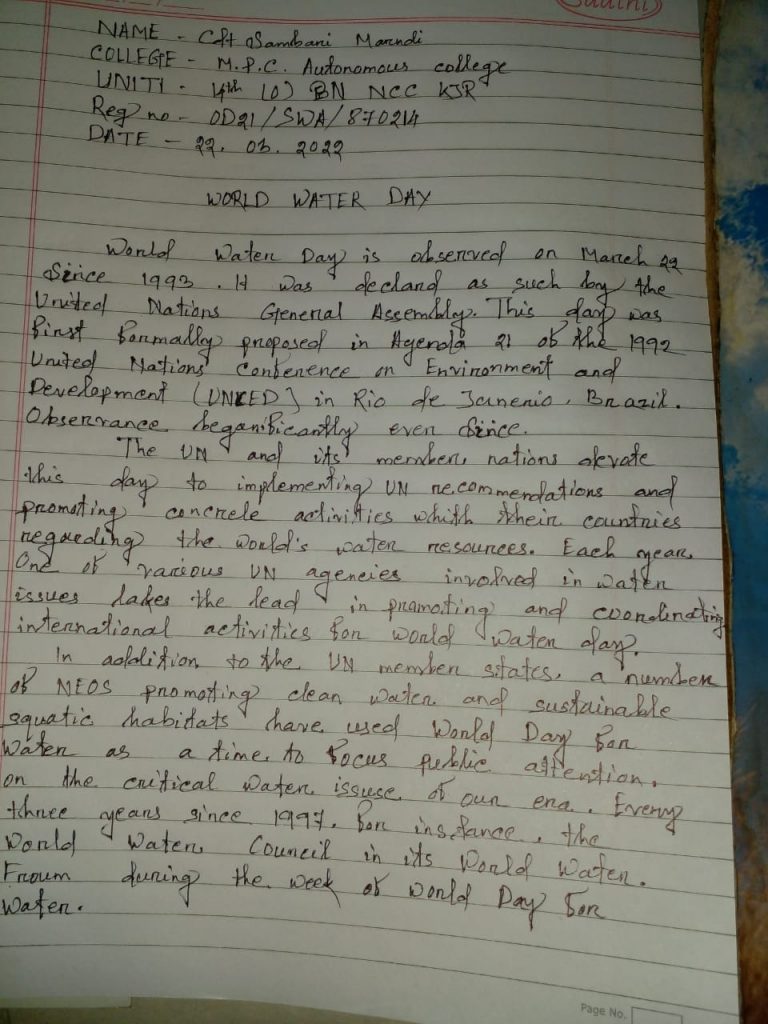 Sadini
NAME - Cdt Sambani Marndi
COLLEGE - M.P.C. Autonomous college
UNIT1 - 14th (O) BN NCC KJR
Reg no - OD21/SWA/870214
DATE - 22. 03. 2022
WORLD WATER DAY
World Water Day is observed on March 22
Since 1993. It was declard as such by the
United Nations General Assembly. This day was
first formally proposed in Agenda 21 of the 1992
United Nations Conference on Environment and
Development (UNCED) in Rio de Janenio, Brazil.
Observance beganificantly even Since.
The UN and its member, nations devate
this day to implementing UN recommendations and
promoting concrele activities whith their countries
regarding the world's water resources. Each year,
One of various UN agencies involved in water
issues lakes the lead in promoting and coordinating
international activities for world water day.
In addition to the UN member states, a number
of NEOS promoting clean water and sustainable
aquatic habitats have used World Day for
Water as a time to focus public attention,
on the critical water issuse of our era. Every
three years since 1997, for instance, the
World Water Council in its World Water.
Froum during the week of world Day for
Water.
Page No.